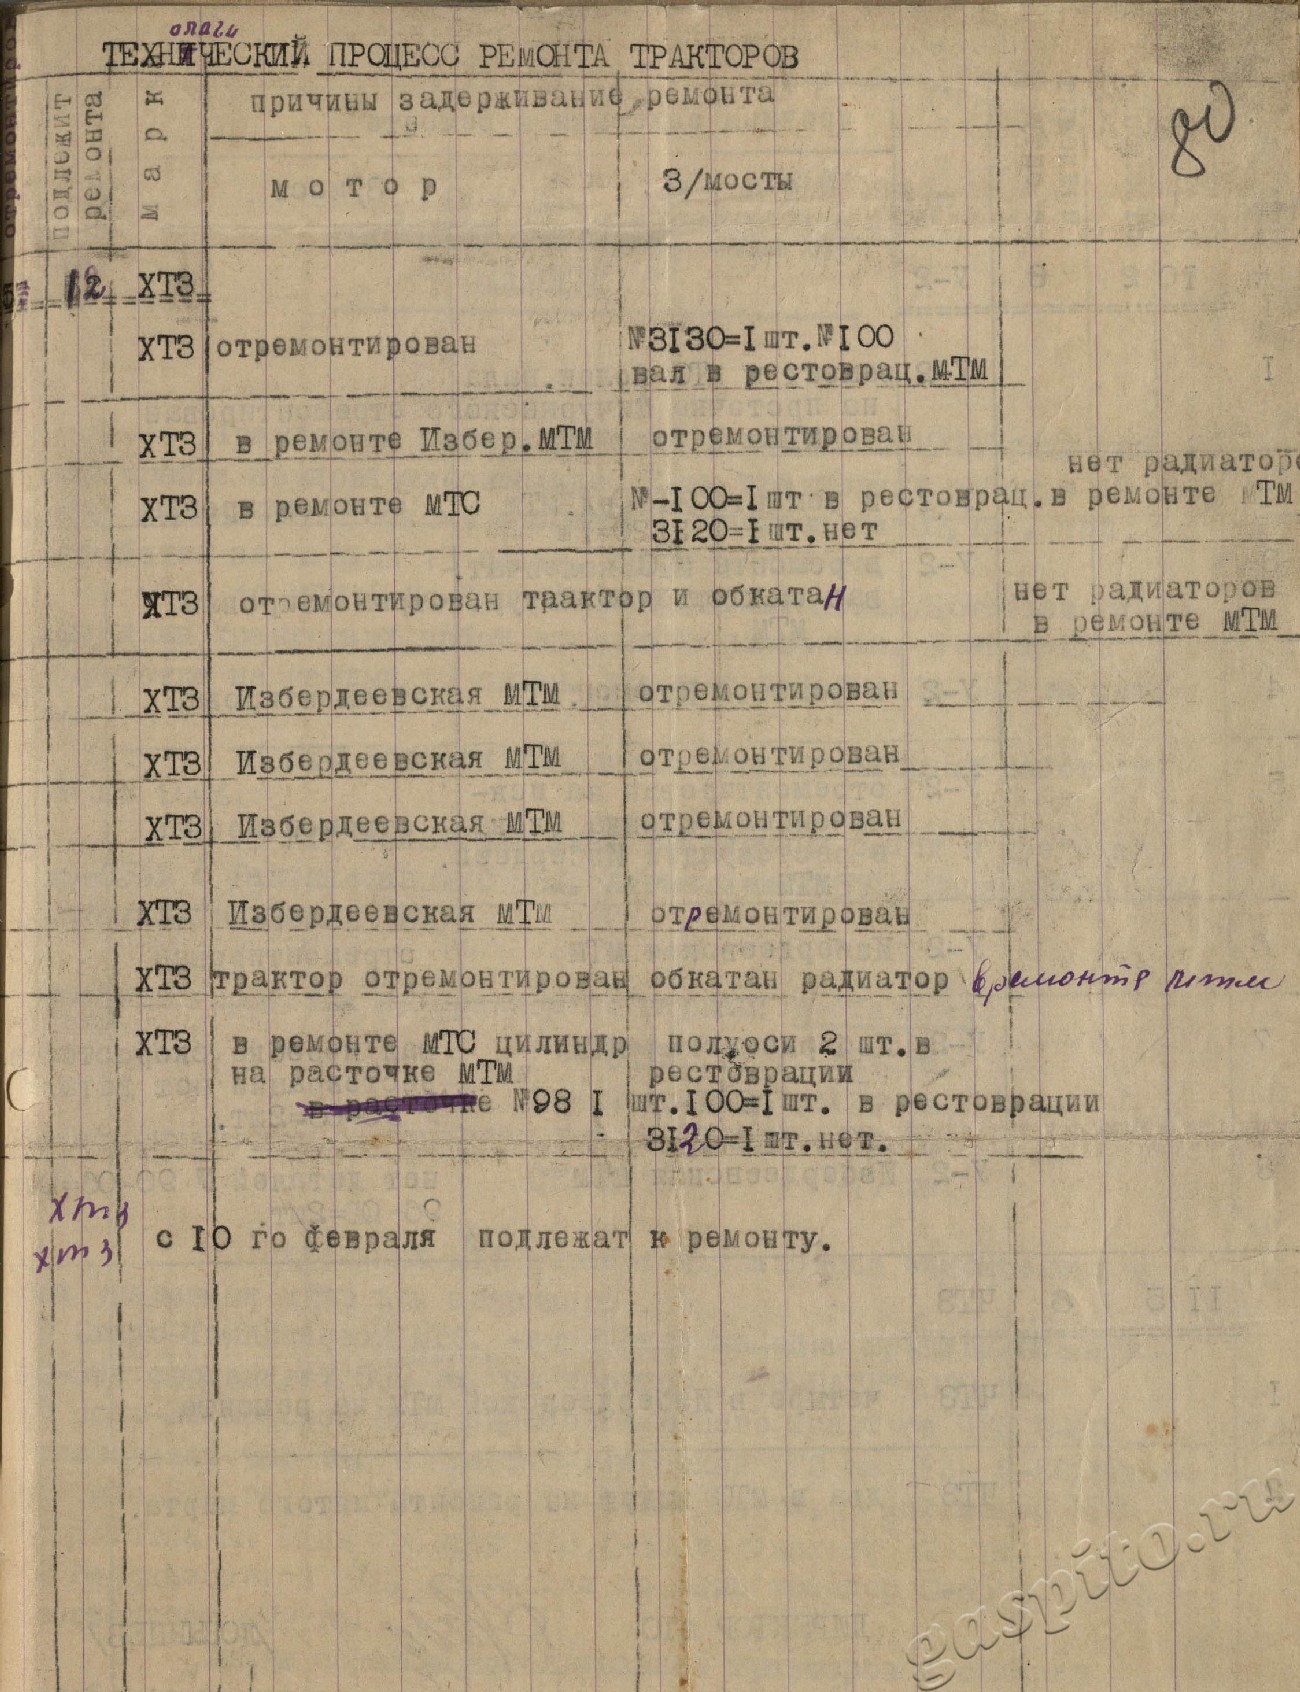 ологи
ТЕХНИЧЕСКИЙ ПРОЦЕСС РЕМОНТА ТРАКТОРОВ
80
подлежит ремонта
марк
причины задерживание ремонта
мотор З/мосты
12 ХТЗ
ХТЗ отремонтирован №3130=I шт.№100
вал в рестоврац.мТм
ХТЗ в ремонте Избер.мТм отремонтирован
нет радиаторо
ХТЗ в ремонте мТС №-100=I шт в рестоврац.в ремонте мТм
3120=I шт.нет
ХТЗ отремонтирован таактор и обкатан нет радиаторов
в ремонте мТм
ХТЗ Избердеевская мТм отремонтирован
ХТЗ Избердеевская мТм отремонтирован
ХТЗ Избердеевская мТм отремонтирован
ХТЗ Избердеевская мТм отремонтирован
ХТЗ трактор отремонтирован обкатан радиатор в ремонте
ХТЗ в ремонте мТС цилиндр полуоси 2 шт.в
на расточке МТМ рестоврации
в расточке №98 I шт.100=I шт. в рестоврации
3120=I шт.нет.
хтз
хтз с 10 го февраля подлежат к ремонту.
gaspito.ru